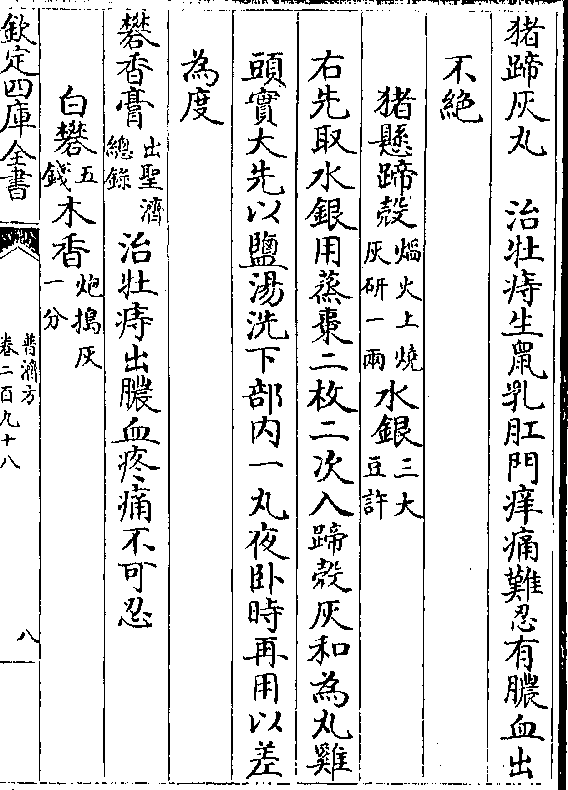 猪蹄灰丸　治牡痔生鼠乳肛門痒痛難忍有膿血出
不絶
猪懸蹄殼煏火上燒灰研一兩水銀三大豆許
右先取水銀用蒸棗二枚二次入蹄殼灰和為丸雞
頭實大先以鹽湯洗下部内一丸夜卧時再用以差
為度
礬香膏出聖濟總錄治牡痔出膿血疼痛不可忍
白礬五錢木香炮搗灰一分
欽定四庫全書
普濟方
卷二百九十八
八